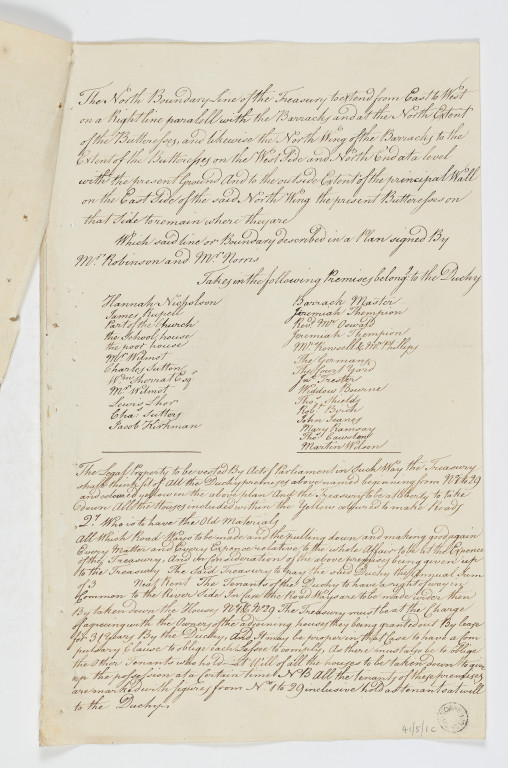 The North Boundary line of the Treasury to extend from East to West
on a Right line paralell with the Barracks and at the North Extent
of the Buttresses, and likewise the North Wing of the Barracks to the
Extent of the Buttresses on the West Side and North End at a level
with the present Ground And to the outside Extent of the principal Wall
on the East Side of the said North Wing the present Buttresses on
that Side to remain where they are
Which said line or Boundary described in a Plan signed By
Mr. Robinson and Mr. Norris
Takes in the following Premises belong.g to the Duchy
Hannah Nicholson
James Rupell
Part of the Church
the School house
the poor house
Mr. Wilmot
Charles Sutton
Wm. Shorrat Esq
Mr. Wilmot
Lewis Thor
Chas. Suttory
Jacob Kirkman
Barrack Master
Jeremiah Thompson
Revd. Mr. Oswald
Jeremiah Thompson
Mr. Kensell & Mr. Phillips
The Germans
The Court Yard
Jno. Trester
Widdow Bourne
Thos. Shields
Robt. Birch
John Jeanes
Mary Ramsay
Thos. Cawston
Martin Wilson
The Legal Property to be vested By Act of Parliament in Such Way the Treasury
shall think fit of All the Duchy premises above named beg.ning from No. 8 to 29
and colored yellow in the above plan And the Treasury to be at liberty to take
down All the Houses included within the Yellow required to make Roads
2d. Who is to have the Old Materials
All Which Road Ways to be made and the pulling down and making good again
Every Matter and Every Expence relative to the whole Affair to be at the Expence
of the Treasury, And in consideration of the above premises being given up
to the Treasury The said Treasury to pay the said Duchy the Annual Sum
of 3 Neat Rent The Tenants of the Duchy to have a right of way in
Common to the River Side In case the Road Ways are to be made under then
By taken down the Houses No. 28 & No. 29 The Treasury must be at the Charge
of agreeing with the Owners of the adjoining houses they being granted out By lease
for 31 Years By the Duchy, And it may be proper in that Case to have a Com
pulsary Clause to oblige each Lessee to comply As there must also be to oblige
the other Tenants who hold at Will of all the houses to be taken down to give
up the possession at a Certain time NB All the tenants of these premises
are marked with figures from No. 1 to 29 inclusive hold as tenants at will
to the Duchy.
41/5/1C